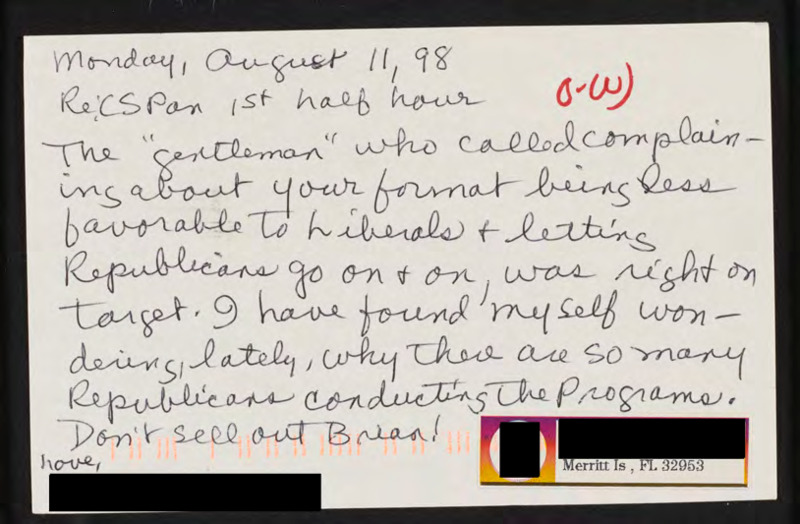 Monday, August 11, 98
Re: CSPan 1st half hour
O-W)
The "gentleman" who called complain-
ing about your format being less
favorable to Liberals + letting
Republicans go on + on, was right on
target. I have found myself won-
dering, lately, why there are so many
Republicans conducting the Programs.
Don't sell out Brian!
Love,
Merritt Is , FL 32953